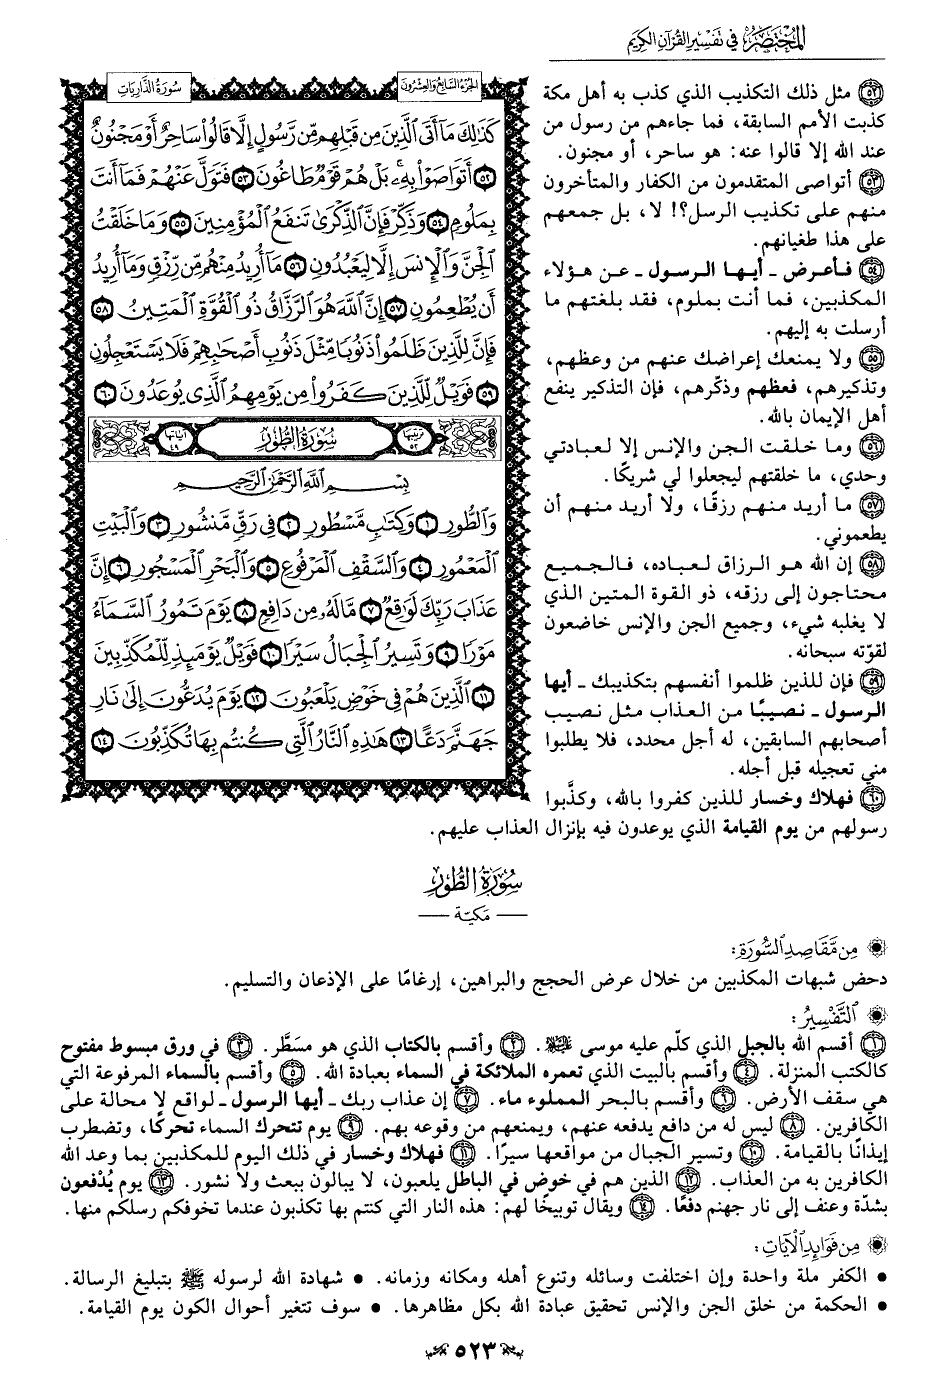 المختصر في تفسير القرآن الكريم
الجزء السابع والعشرون
سورة الذاريات
كَذَٰلِكَ مَا أَتَى الَّذِينَ مِن قَبْلِهِم مِّن رَّسُولٍ إِلَّا قَالُوا سَاحِرٌ أَوْ مَجْنُونٌ
٥٢ أَتَوَاصَوْا بِهِۦ بَلْ هُمْ قَوْمٌ طَاغُونَ ٥٣ فَتَوَلَّ عَنْهُمْ فَمَا أَنتَ
بِمَلُومٍ ٥٤ وَذَكِّرْ فَإِنَّ الذِّكْرَىٰ تَنفَعُ الْمُؤْمِنِينَ ٥٥ وَمَا خَلَقْتُ
الْجِنَّ وَالْإِنسَ إِلَّا لِيَعْبُدُونِ ٥٦ مَا أُرِيدُ مِنْهُم مِّن رِّزْقٍ وَمَا أُرِيدُ
أَن يُطْعِمُونِ ٥٧ إِنَّ اللَّهَ هُوَ الرَّزَّاقُ ذُو الْقُوَّةِ الْمَتِينُ ٥٨
فَإِنَّ لِلَّذِينَ ظَلَمُوا ذَنُوبًا مِّثْلَ ذَنُوبِ أَصْحَابِهِمْ فَلَا يَسْتَعْجِلُونِ
٥٩ فَوَيْلٌ لِّلَّذِينَ كَفَرُوا مِن يَوْمِهِمُ الَّذِي يُوعَدُونَ ٦٠
ترتيبها ٥٢
سورة الطور
آياتها ٤٩
بِسْمِ اللَّهِ الرَّحْمَٰنِ الرَّحِيمِ
وَالطُّورِ ١ وَكِتَابٍ مَّسْطُورٍ ٢ فِي رَقٍّ مَّنشُورٍ ٣ وَالْبَيْتِ
الْمَعْمُورِ ٤ وَالسَّقْفِ الْمَرْفُوعِ ٥ وَالْبَحْرِ الْمَسْجُورِ ٦ إِنَّ
عَذَابَ رَبِّكَ لَوَاقِعٌ ٧ مَّا لَهُ مِن دَافِعٍ ٨ يَوْمَ تَمُورُ السَّمَاءُ
مَوْرًا ٩ وَتَسِيرُ الْجِبَالُ سَيْرًا ١٠ فَوَيْلٌ يَوْمَئِذٍ لِّلْمُكَذِّبِينَ
١١ الَّذِينَ هُمْ فِي خَوْضٍ يَلْعَبُونَ ١٢ يَوْمَ يُدَعُّونَ إِلَىٰ نَارِ
جَهَنَّمَ دَعًّا ١٣ هَٰذِهِ النَّارُ الَّتِي كُنتُم بِهَا تُكَذِّبُونَ ١٤
٥٢ مثل ذلك التكذيب الذي كذب به أهل مكة
كذبت الأمم السابقة، فما جاءهم من رسول من
عند الله إلا قالوا عنه: هو ساحر، أو مجنون.
٥٣ أتواصى المتقدمون من الكفار والمتأخرون
منهم على تكذيب الرسل؟! لا، بل جمعهم
على هذا طغيانهم.
٥٤ فأعرض ـ أيها الرسول ـ عن هؤلاء
المكذبين، فما أنت بملوم، فقد بلغتهم ما
أرسلت به إليهم.
٥٥ ولا يمنعك إعراضك عنهم من وعظهم،
وتذكيرهم، فعظهم وذكّرهم، فإن التذكير ينفع
أهل الإيمان بالله.
٥٦ وما خلقت الجن والإنس إلا لعبادتي
وحدي، ما خلقتهم ليجعلوا لي شريكًا.
٥٧ ما أريد منهم رزقًا، ولا أريد منهم أن
يطعموني.
٥٨ إن الله هو الرزاق لعباده، فالجميع
محتاجون إلى رزقه، ذو القوة المتين الذي
لا يغلبه شيء، وجميع الجن والإنس خاضعون
لقوّته سبحانه.
٥٩ فإن للذين ظلموا أنفسهم بتكذيبك ـ أيها
الرسول ـ نصيبًا من العذاب مثل نصيب
أصحابهم السابقين، له أجل محدد، فلا يطلبوا
مني تعجيله قبل أجله.
٦٠ فهلاك وخسار للذين كفروا بالله، وكذَّبوا
رسولهم من يوم القيامة الذي يوعدون فيه بإنزال العذاب عليهم.
سورة الطور
— مكية —
من مقاصد السورة:
دحض شبهات المكذبين من خلال عرض الحجج والبراهين، إرغامًا على الإذعان والتسليم.
التفسير:
١ أقسم الله بالجبل الذي كلّم عليه موسى عليه السلام. ٢ وأقسم بالكتاب الذي هو مسَطَّر. ٣ في ورق مبسوط مفتوح
كالكتب المنزلة. ٤ وأقسم بالبيت الذي تعمره الملائكة في السماء بعبادة الله. ٥ وأقسم بالسماء المرفوعة التي
هي سقف الأرض. ٦ وأقسم بالبحر المملوء ماء. ٧ إن عذاب ربك ـ أيها الرسول ـ لواقع لا محالة على
الكافرين. ٨ ليس له من دافع يدفعه عنهم، ويمنعهم من وقوعه بهم. ٩ يوم تتحرك السماء تحركًا، وتضطرب
إيذانًا بالقيامة. ١٠ وتسير الجبال من مواقعها سيرًا. ١١ فهلاك وخسار في ذلك اليوم للمكذبين بما وعد الله
الكافرين به من العذاب. ١٢ الذين هم في خوض في الباطل يلعبون، لا يبالون ببعث ولا نشور. ١٣ يوم يُدْفعون
بشدّة وعنف إلى نار جهنم دفعًا. ١٤ ويقال توبيخًا لهم: هذه النار التي كنتم بها تكذبون عندما تخوفكم رسلكم منها.
من فوائد الآيات:
• الكفر ملة واحدة وإن اختلفت وسائله وتنوع أهله ومكانه وزمانه. • شهادة الله لرسوله ﷺ بتبليغ الرسالة.
• الحكمة من خلق الجن والإنس تحقيق عبادة الله بكل مظاهرها. • سوف تتغير أحوال الكون يوم القيامة.
٥٢٣